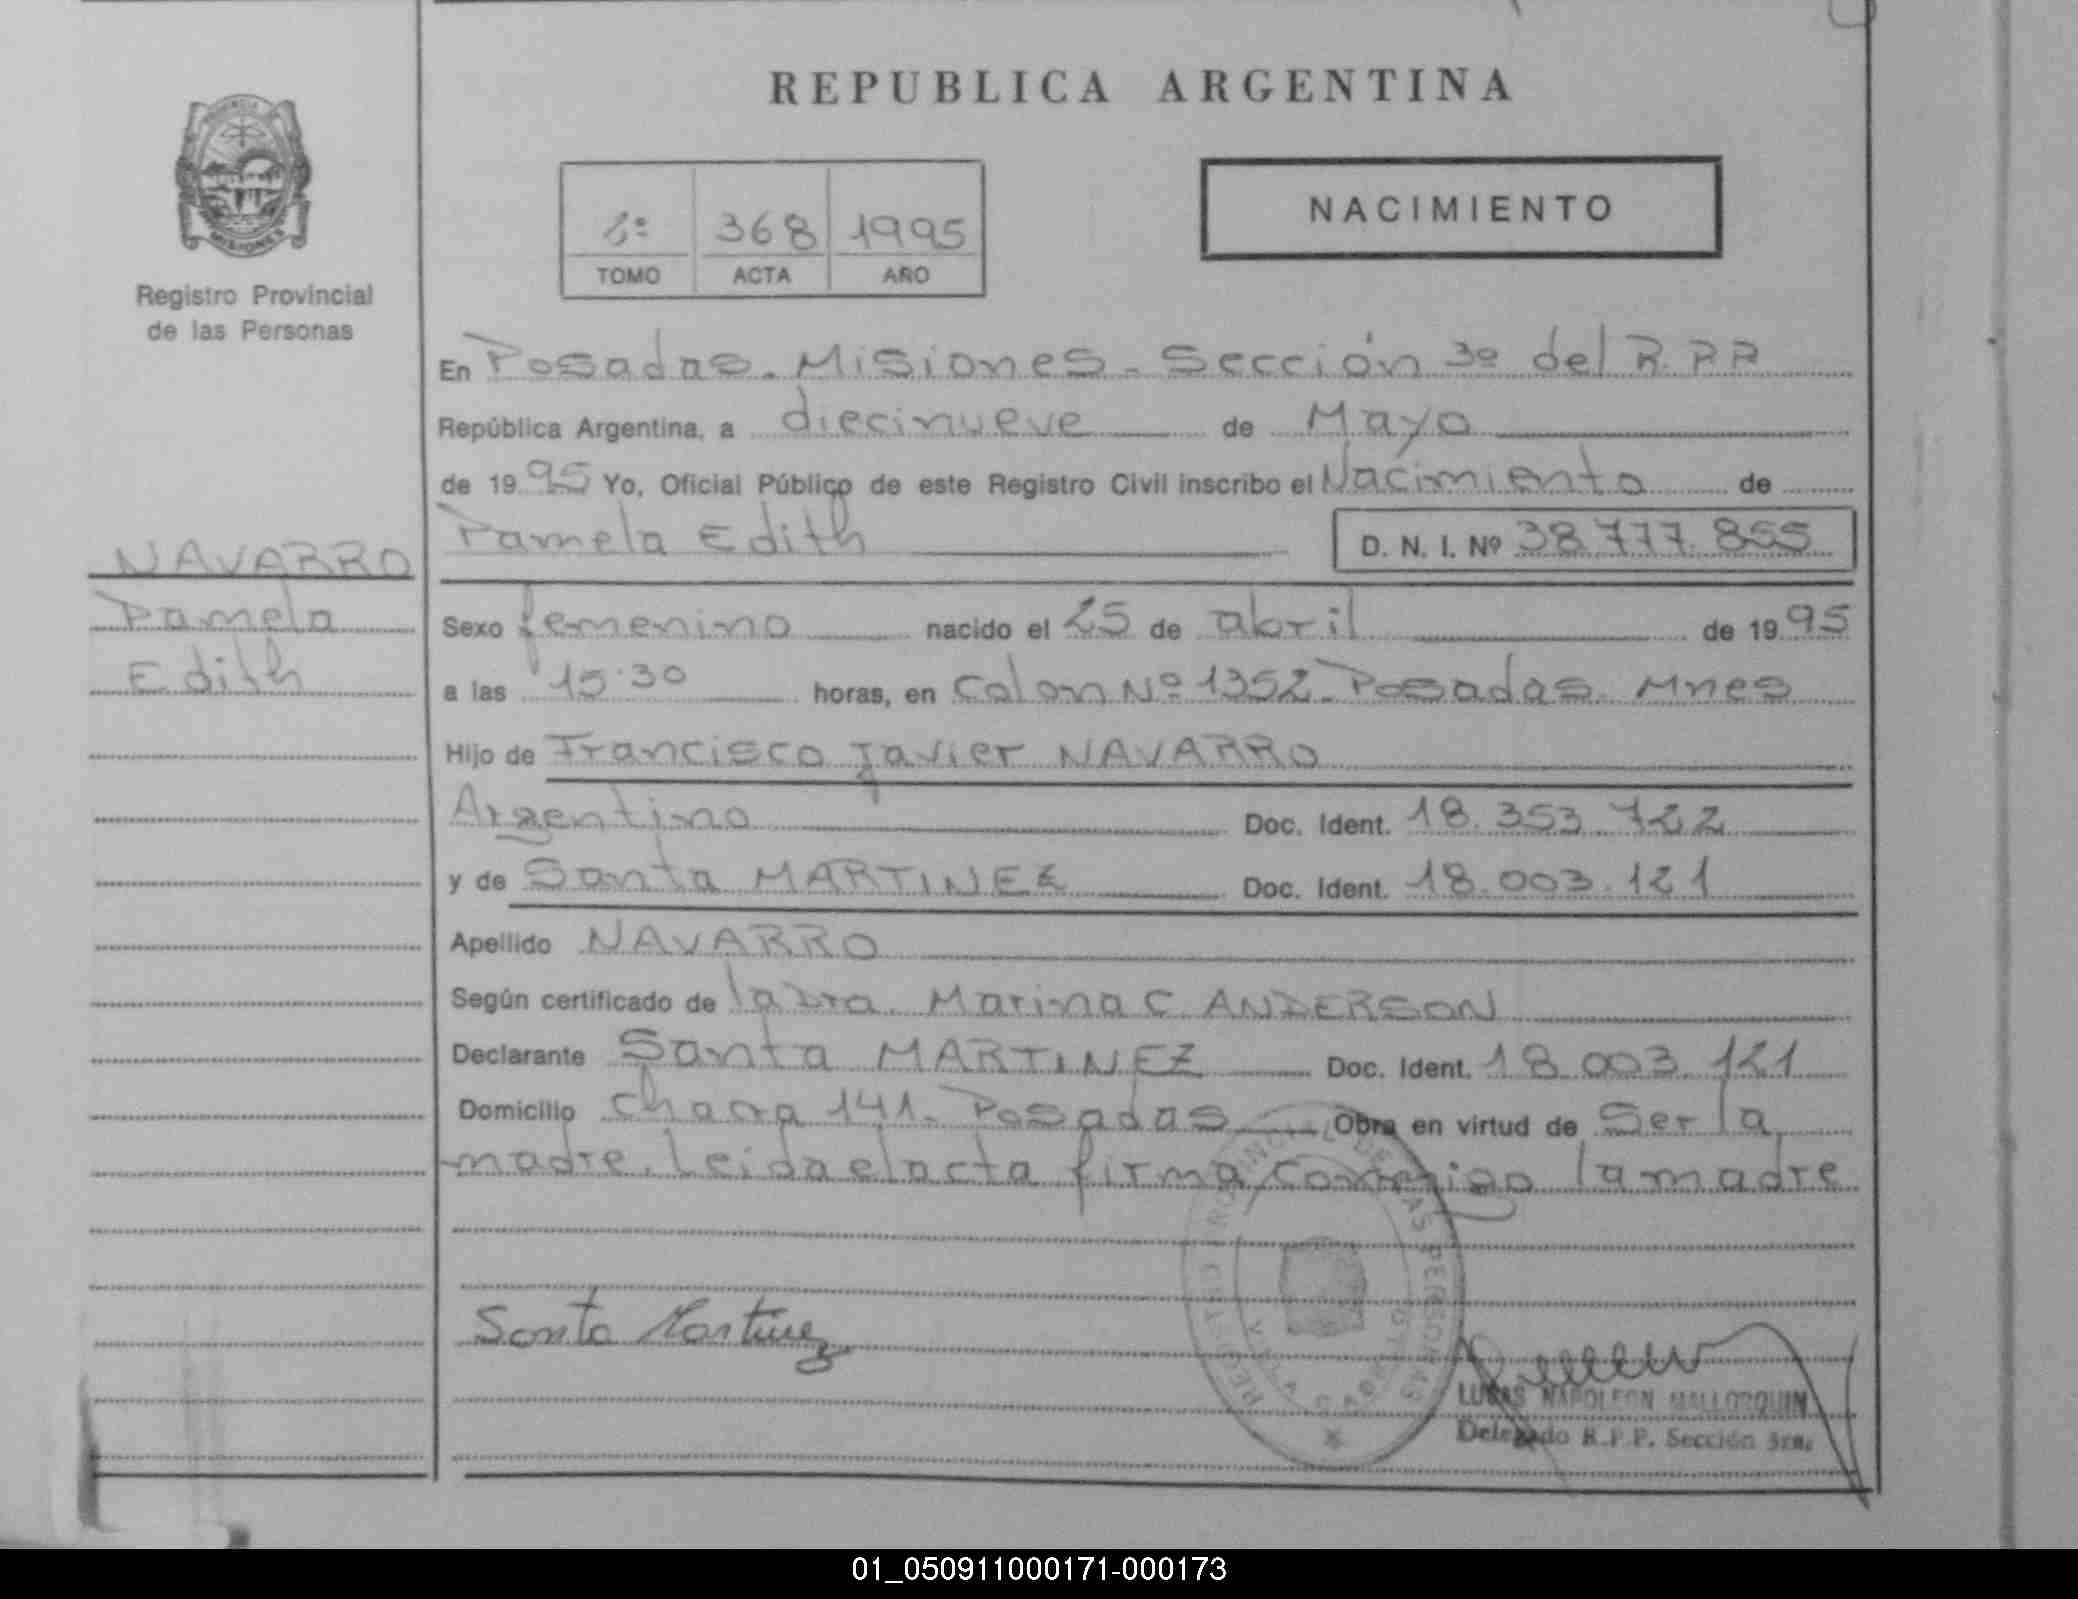 REPUBLICA ARGENTINA
NACIMIENTO
1º 368 1995
TOMO ACTA AÑO
MISIONES
Registro Provincial
de las Personas
En Posadas. Misiones. Sección 3º del R.P.P
República Argentina, a diecinueve de Mayo
de 1995 Yo, Oficial Público de este Registro Civil inscribo el Nacimiento de
Pamela Edith D. N. I. Nº 38.777.855
NAVARRO
Pamela
Edith
Sexo femenino nacido el 25 de abril de 1995
a las 15:30 horas, en Colon Nº 1352 Posadas. Mnes
Hijo de Francisco Javier NAVARRO
Argentino Doc. Ident. 18.353.722
y de Santa MARTINEZ Doc. Ident. 18.003.121
Apellido NAVARRO
Según certificado de la Dra. Marina C. ANDERSON
Declarante Santa MARTINEZ Doc. Ident. 18.003.121
Domicilio Chacra 141. Posadas Obra en virtud de Ser la
madre. Leida el acta firma conmigo la madre
Santa Martinez
REGISTRO PROVINCIAL DE LAS PERSONAS
LUCAS NAPOLEON MALLORQUIN
Delegado R.P.P. Sección 3ra.
01_050911000171-000173